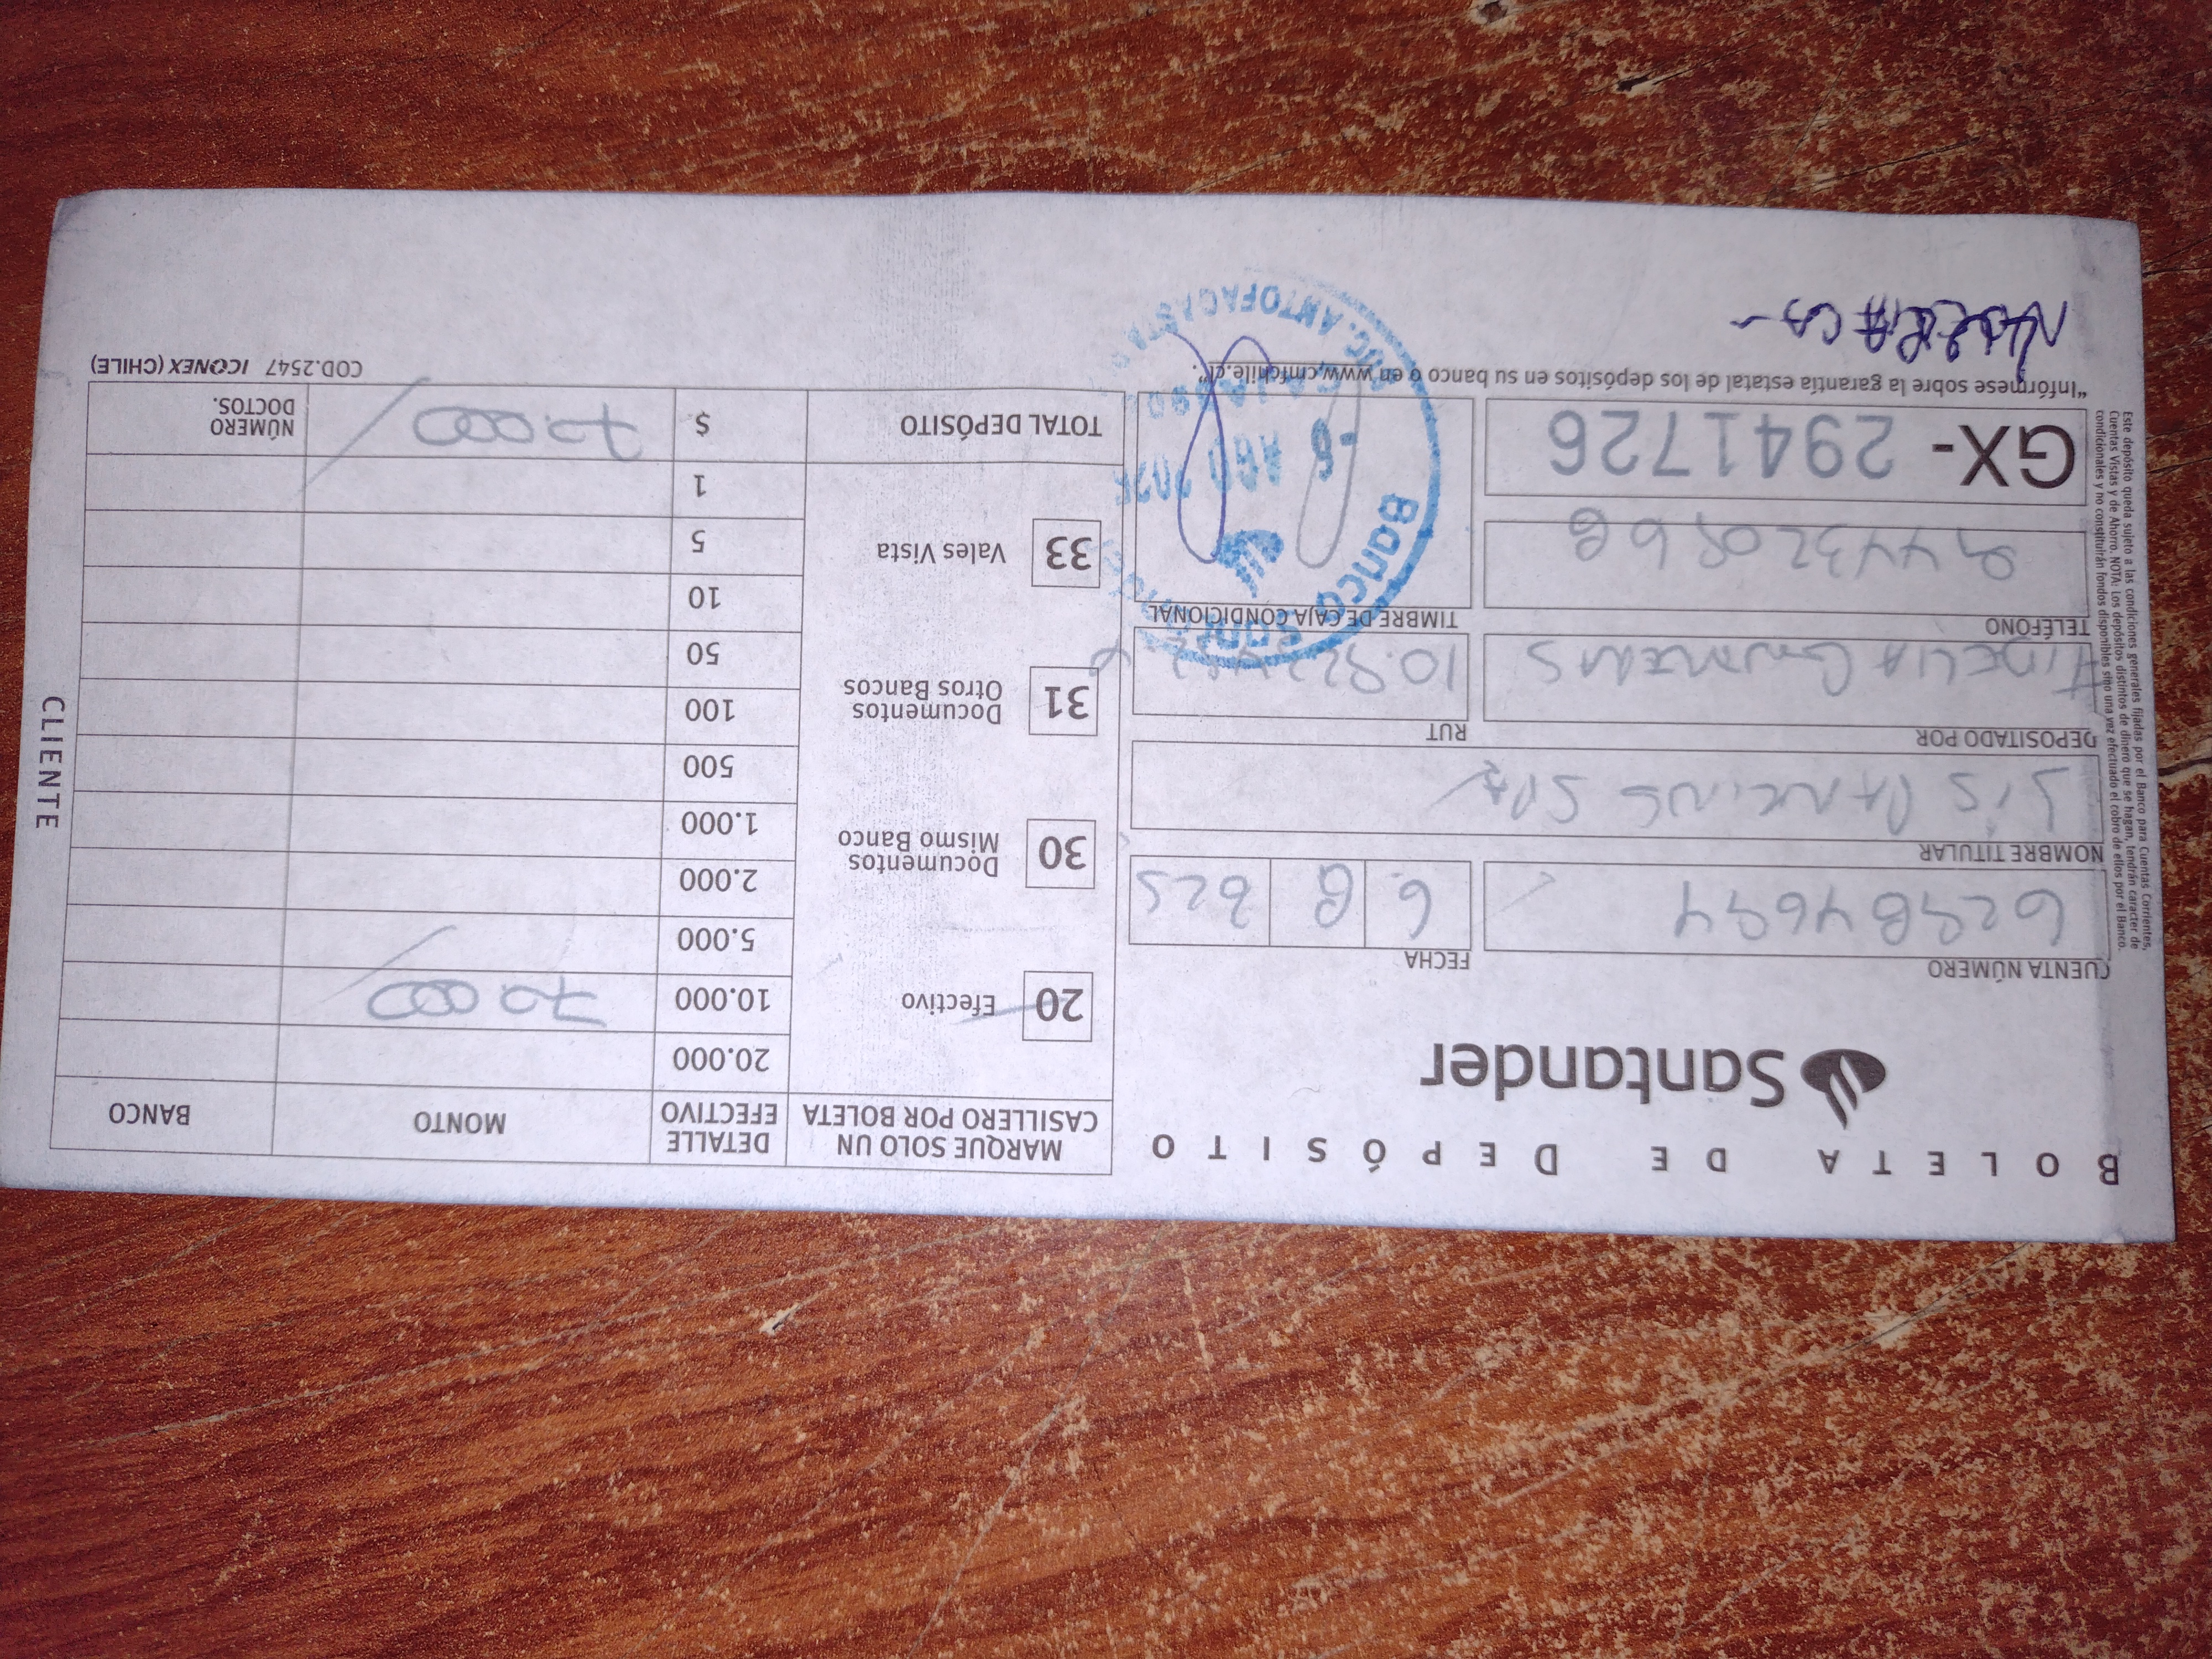 BOLETA DE DEPÓSITO
Santander
CUENTA NÚMERO
FECHA
6 8
NOMBRE TITULAR
SIS PARKING SPA
DEPOSITADO POR
RUT
TELÉFONO
TIMBRE DE CAJA CONDICIONAL
GX- 2941726
"Infórmese sobre la garantía estatal de los depósitos en su banco o en www.cmfchile.cl".
Este depósito queda sujeto a las condiciones generales fijadas por el Banco para Cuentas Corrientes,
Cuentas Vistas y de Ahorro. NOTA: Los depósitos distintos de dinero que se hagan, tendrán carácter de
condicionales y no constituirán fondos disponibles sino una vez efectuado el cobro de ellos por el Banco.
MARQUE SOLO UN
CASILLERO POR BOLETA
DETALLE
EFECTIVO
MONTO
BANCO
20 Efectivo
30 Documentos
Mismo Banco
31 Documentos
Otros Bancos
33 Vales Vista
20.000
10.000 70.000
5.000
2.000
1.000
500
100
50
10
5
1
TOTAL DEPÓSITO $ 70.000
NÚMERO
DOCTOS.
COD.2547 ICONEX (CHILE)
CLIENTE
Banco
-6 AGO
ANTOFAGASTA